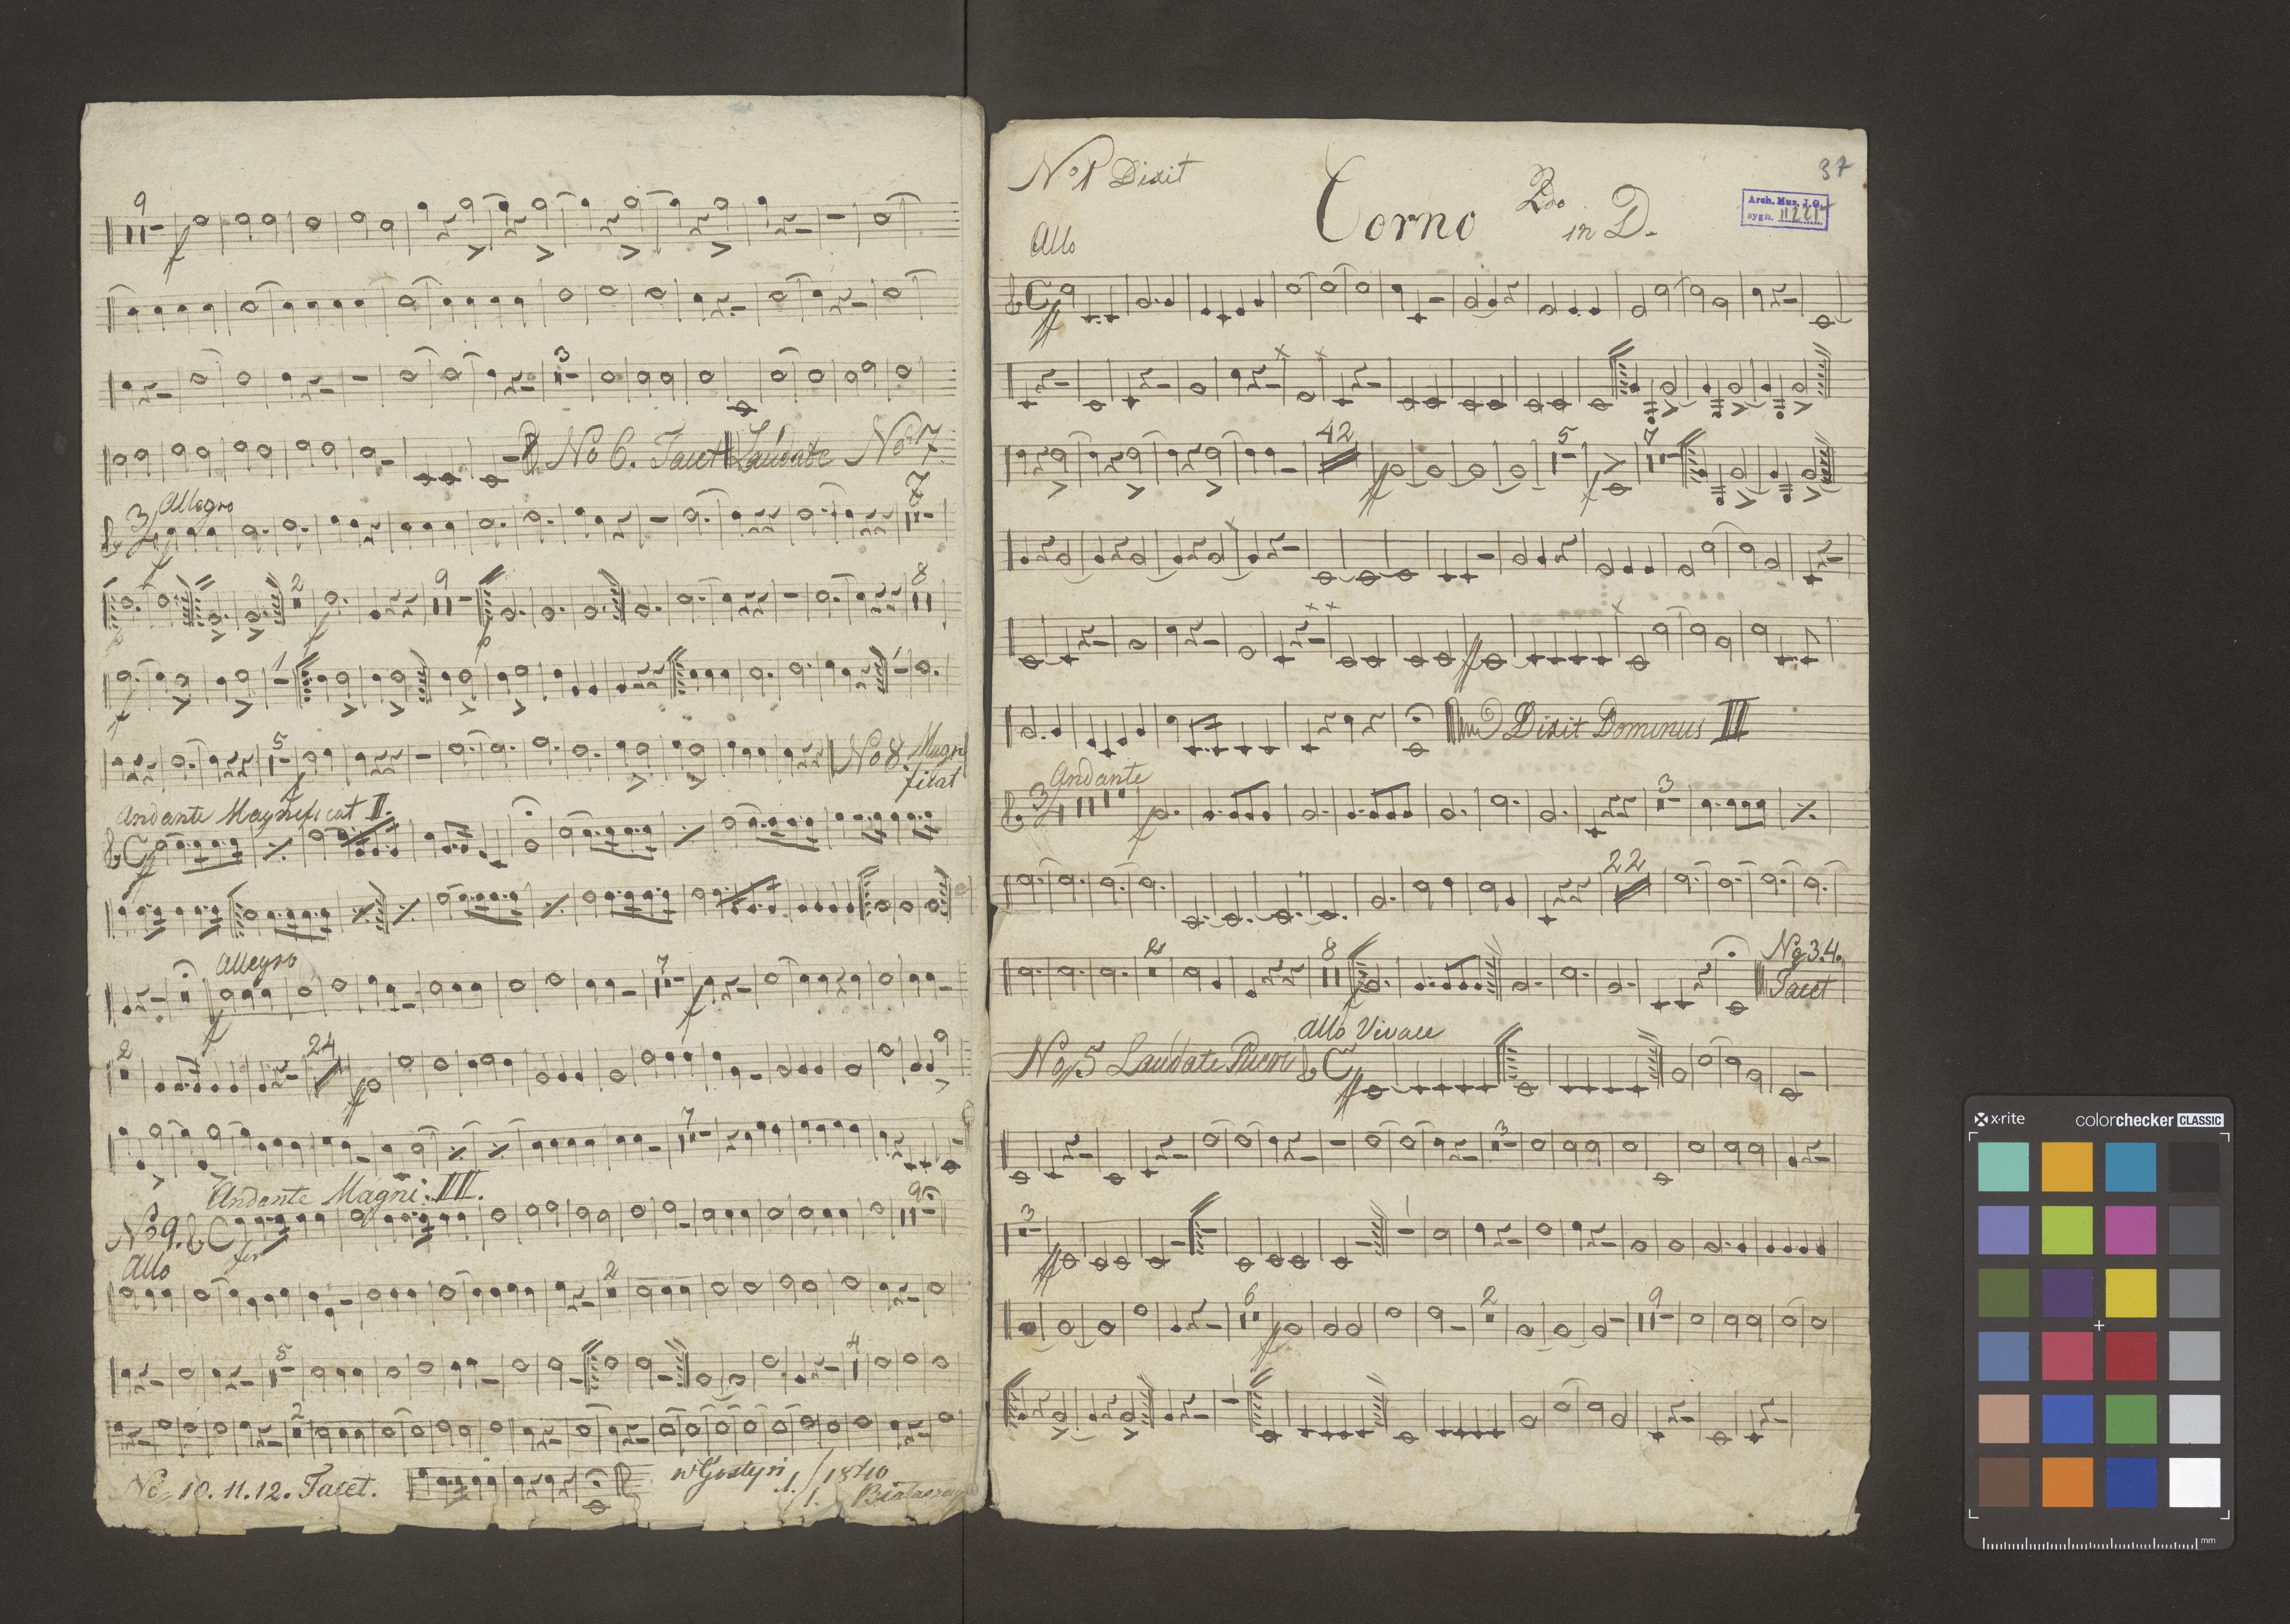 9
f
3
No 6. Tacet Laudate No 7
Allegro
3
7
f
2
9
8
f
1
1
f
5
No 8. Magni
ficat
f
Andante Magnificat II.
C
ff
Allegro
7
f
f
2
24
ff
7
Andante Magni: III.
No 9. C
9
for
Allo
2
5
4
2
No 10. 11. 12. Tacet.
w Gostyni 1/1 1840
No 1 Dixit
37
Corno 2do in D.
Arch. Muz. J.G.
sygn.
Allo
C
ff
42
5
7
ff
f
ff
Dixit Dominus III
Andante
3
4
3
f
22
2
8
No 3.4.
Tacet
f
No 5 Laudate Pueri
Allo Vivace
C
ff
3
3
1
ff
6
2
9
f
1
x-rite
colorchecker CLASSIC
mm